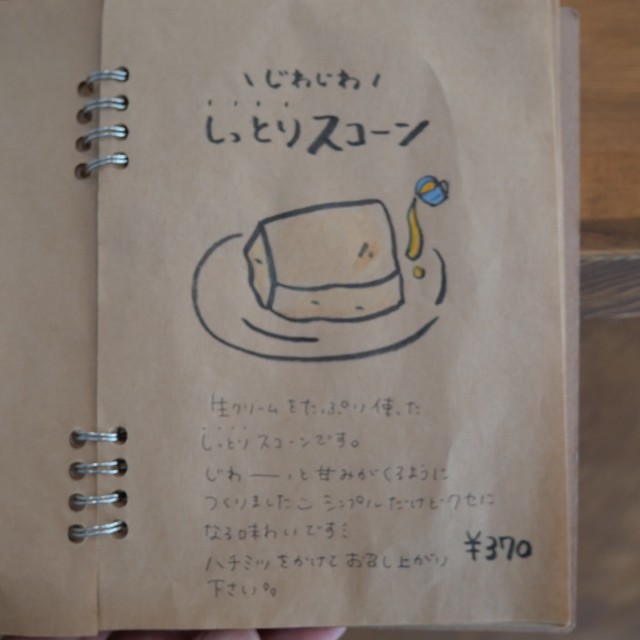 \じわじわ/
しっとりスコーン
生クリームをたっぷり使った
しっとりスコーンです。
じわーーっと甘みがくるように
つくりました。シンプルだけどクセに
なる味わいです!
ハチミツをかけてお召し上がり
下さい。
¥370